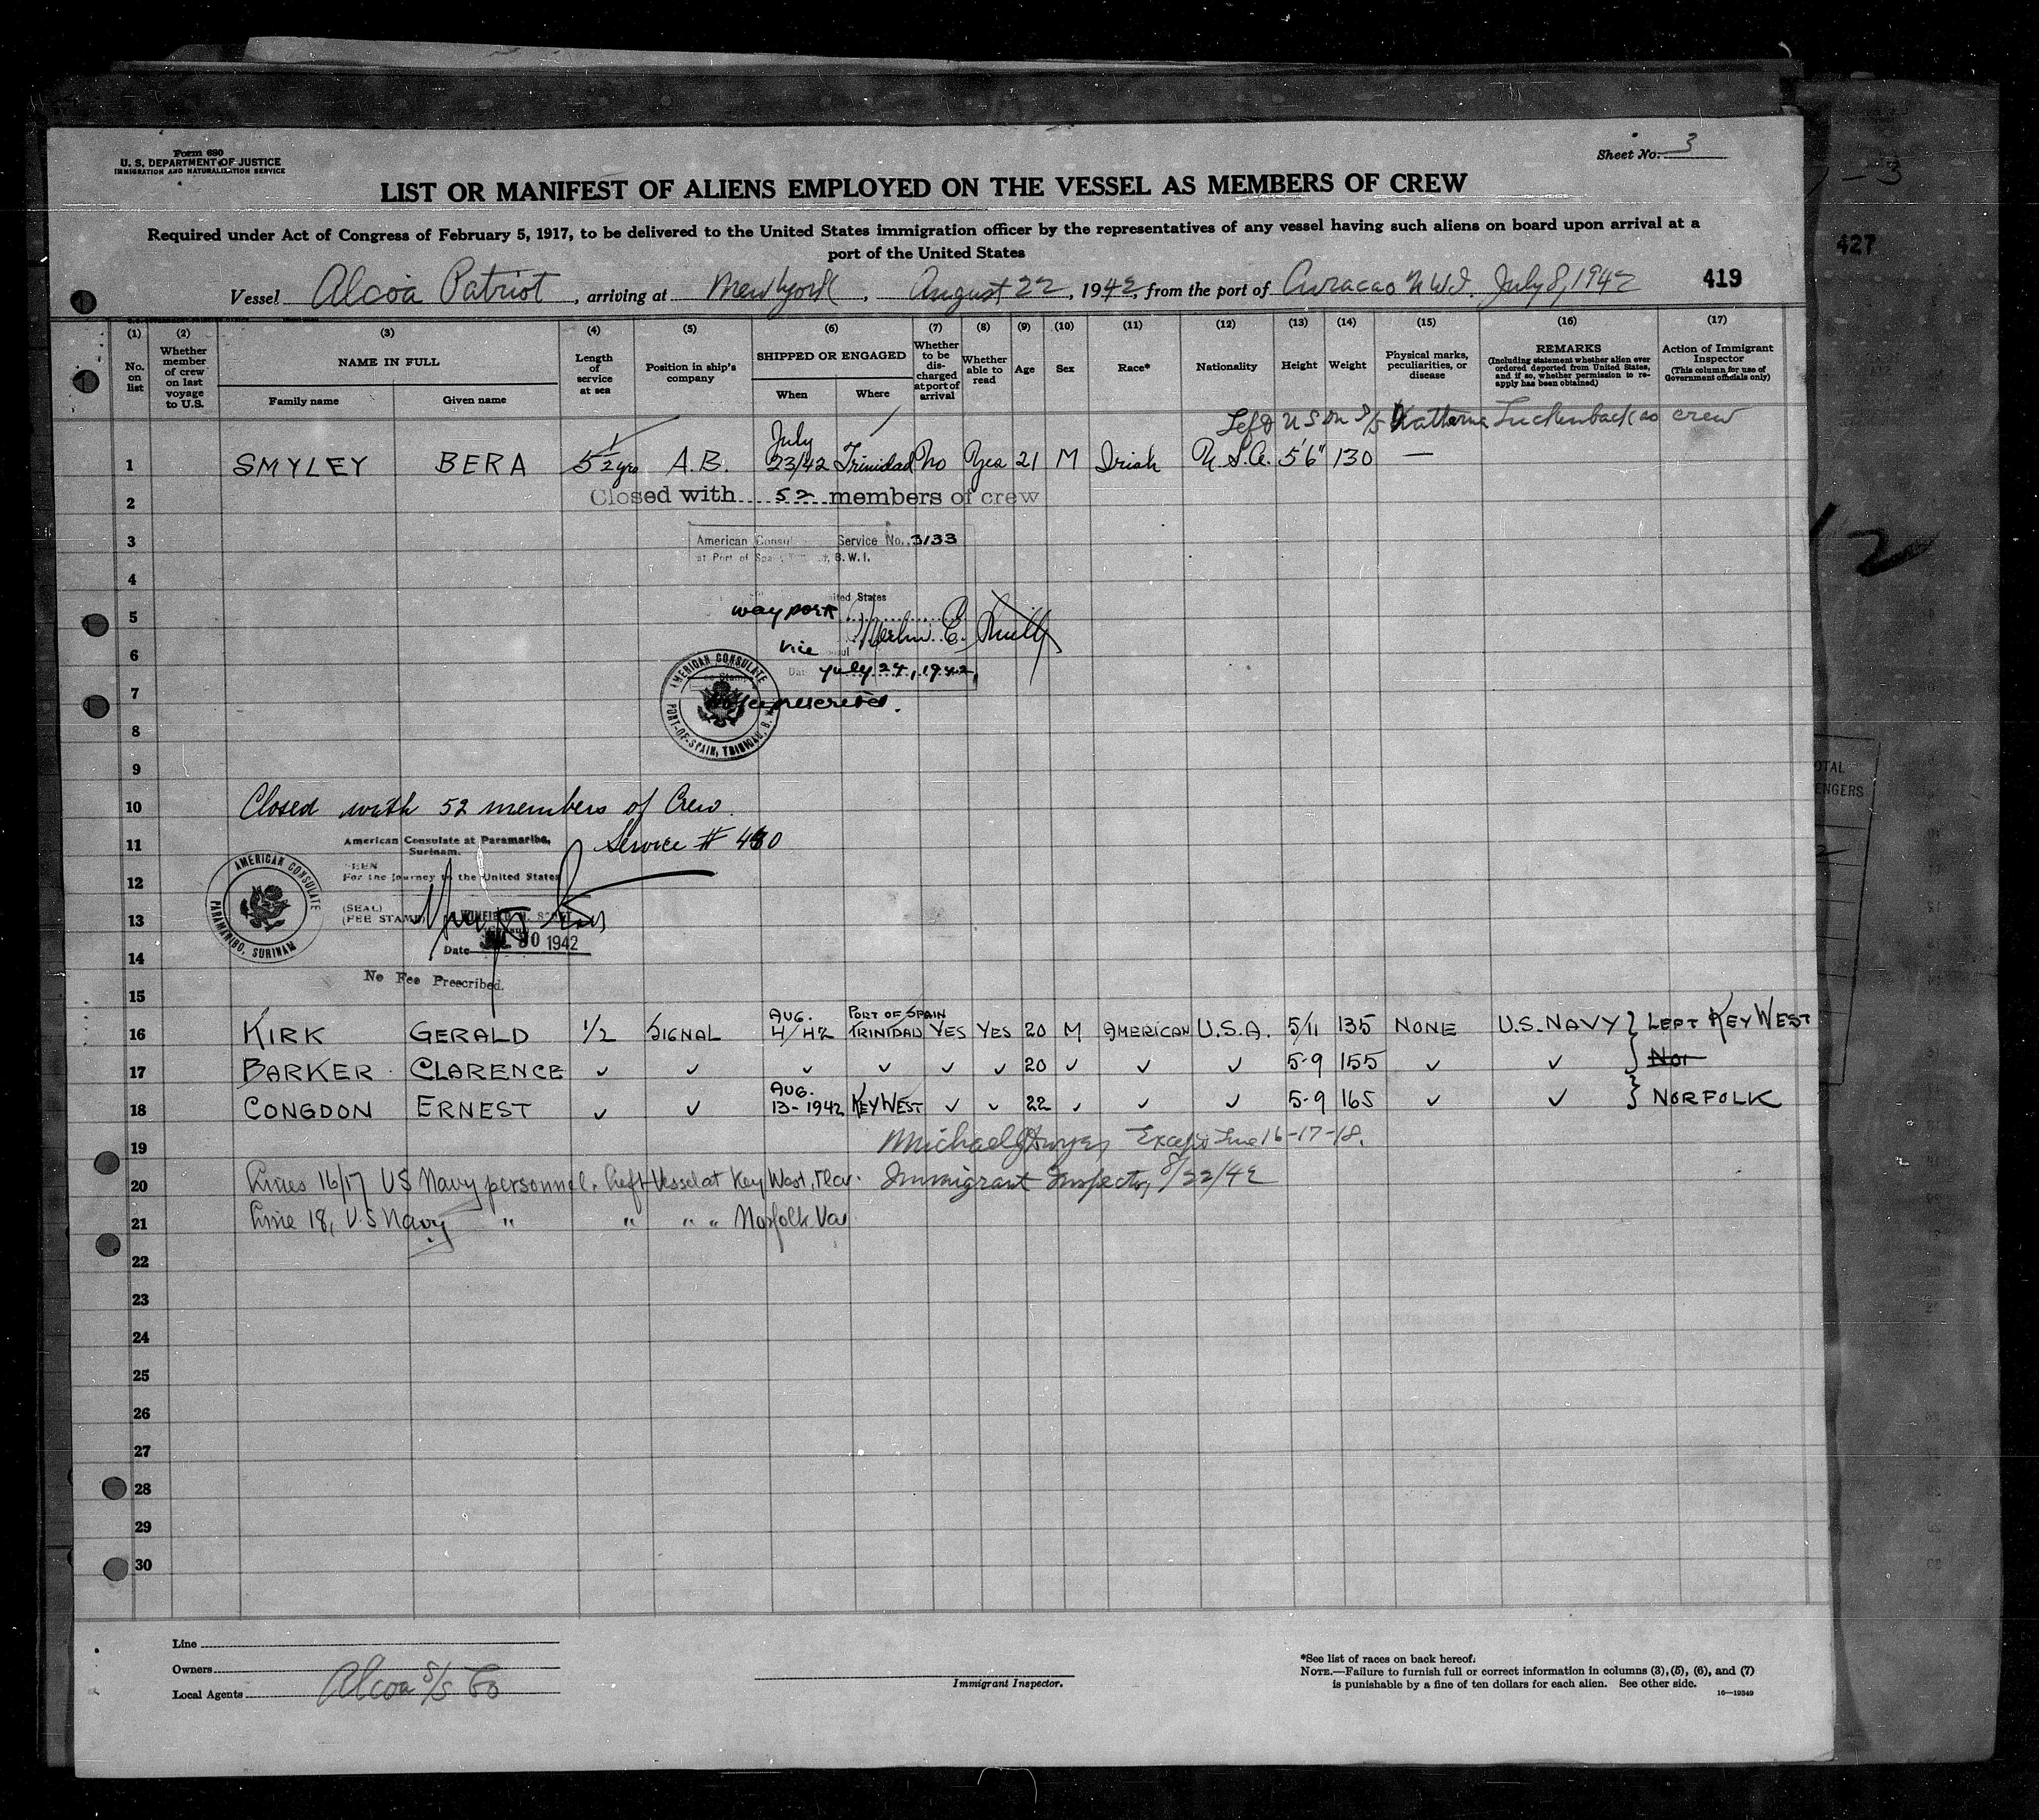 Form 680
U. S. DEPARTMENT OF JUSTICE
IMMIGRATION AND NATURALIZATION SERVICE
Sheet No. 3
LIST OR MANIFEST OF ALIENS EMPLOYED ON THE VESSEL AS MEMBERS OF CREW
Required under Act of Congress of February 5, 1917, to be delivered to the United States immigration officer by the representatives of any vessel having such aliens on board upon arrival at a
port of the United States
427
Vessel Alcoa Patriot, arriving at New York, August 22, 1942, from the port of Curacao N.W.I. July 8, 1942 419
(1) (2) (3) (4) (5) (6) (7) (8) (9) (10) (11) (12) (13) (14) (15) (16) (17)
No. on list
Whether member of crew on last voyage to U.S.
NAME IN FULL
Family name Given name
Length of service at sea
Position in ship's company
SHIPPED OR ENGAGED
When Where
Whether to be discharged at port of arrival
Whether able to read
Age
Sex
Race*
Nationality
Height
Weight
Physical marks, peculiarities, or disease
REMARKS
(Including statement whether alien ever ordered deported from United States, and if so, whether permission to reapply has been obtained)
Action of Immigrant Inspector
(This column for use of Government officials only)
Left U S on S/S Katherine Luckenback as crew
1 SMYLEY BERA 5 1/2 yrs A.B. July 23/42 Trinidad No Yes 21 M Irish U.S.A. 5'6" 130 —
2 Closed with 52 members of crew
3 American Consul Service No. 3133
at Port of Spain, B.W.I.
4
United States
5 way port
Merlin E. Smith
6 Vice
July 24, 1942,
7 No fee prescribed.
AMERICAN CONSULATE PORT-OF-SPAIN, TRINIDAD, B.W.I.
8
9
10 Closed with 52 members of Crew.
11 American Consulate at Paramaribo, Surinam. Service # 430
SEEN
12 For the Journey to the United States
AMERICAN CONSULATE PARAMARIBO, SURINAM
(SEAL)
13 (FEE STAMP) WINFIELD H. SCOTT
14 Date JUL 30 1942
No Fee Prescribed.
15
16 KIRK GERALD 1/2 SIGNAL AUG. 4/42 PORT OF SPAIN TRINIDAD YES YES 20 M AMERICAN U.S.A. 5/11 135 NONE U.S. NAVY } LEFT KEY WEST
17 BARKER CLARENCE ✓ ✓ ✓ ✓ ✓ ✓ 20 ✓ ✓ ✓ 5-9 155 ✓ ✓ } Nor
18 CONGDON ERNEST ✓ ✓ AUG. 13-1942 KEY WEST ✓ ✓ 22 ✓ ✓ ✓ 5-9 165 ✓ ✓ } NORFOLK
19 Michael J Dwyer Except Line 16-17-18.
20 Lines 16/17 US Navy personnel. Left Vessel at Key West, Fla. Immigrant Inspector, 8/22/42
21 Line 18, U.S Navy " " " " Norfolk Va
22
23
24
25
26
27
28
29
30
Line
Owners
Local Agents Alcoa S/S Co
Immigrant Inspector.
*See list of races on back hereof.
NOTE.—Failure to furnish full or correct information in columns (3), (5), (6), and (7)
is punishable by a fine of ten dollars for each alien. See other side.
16—19349